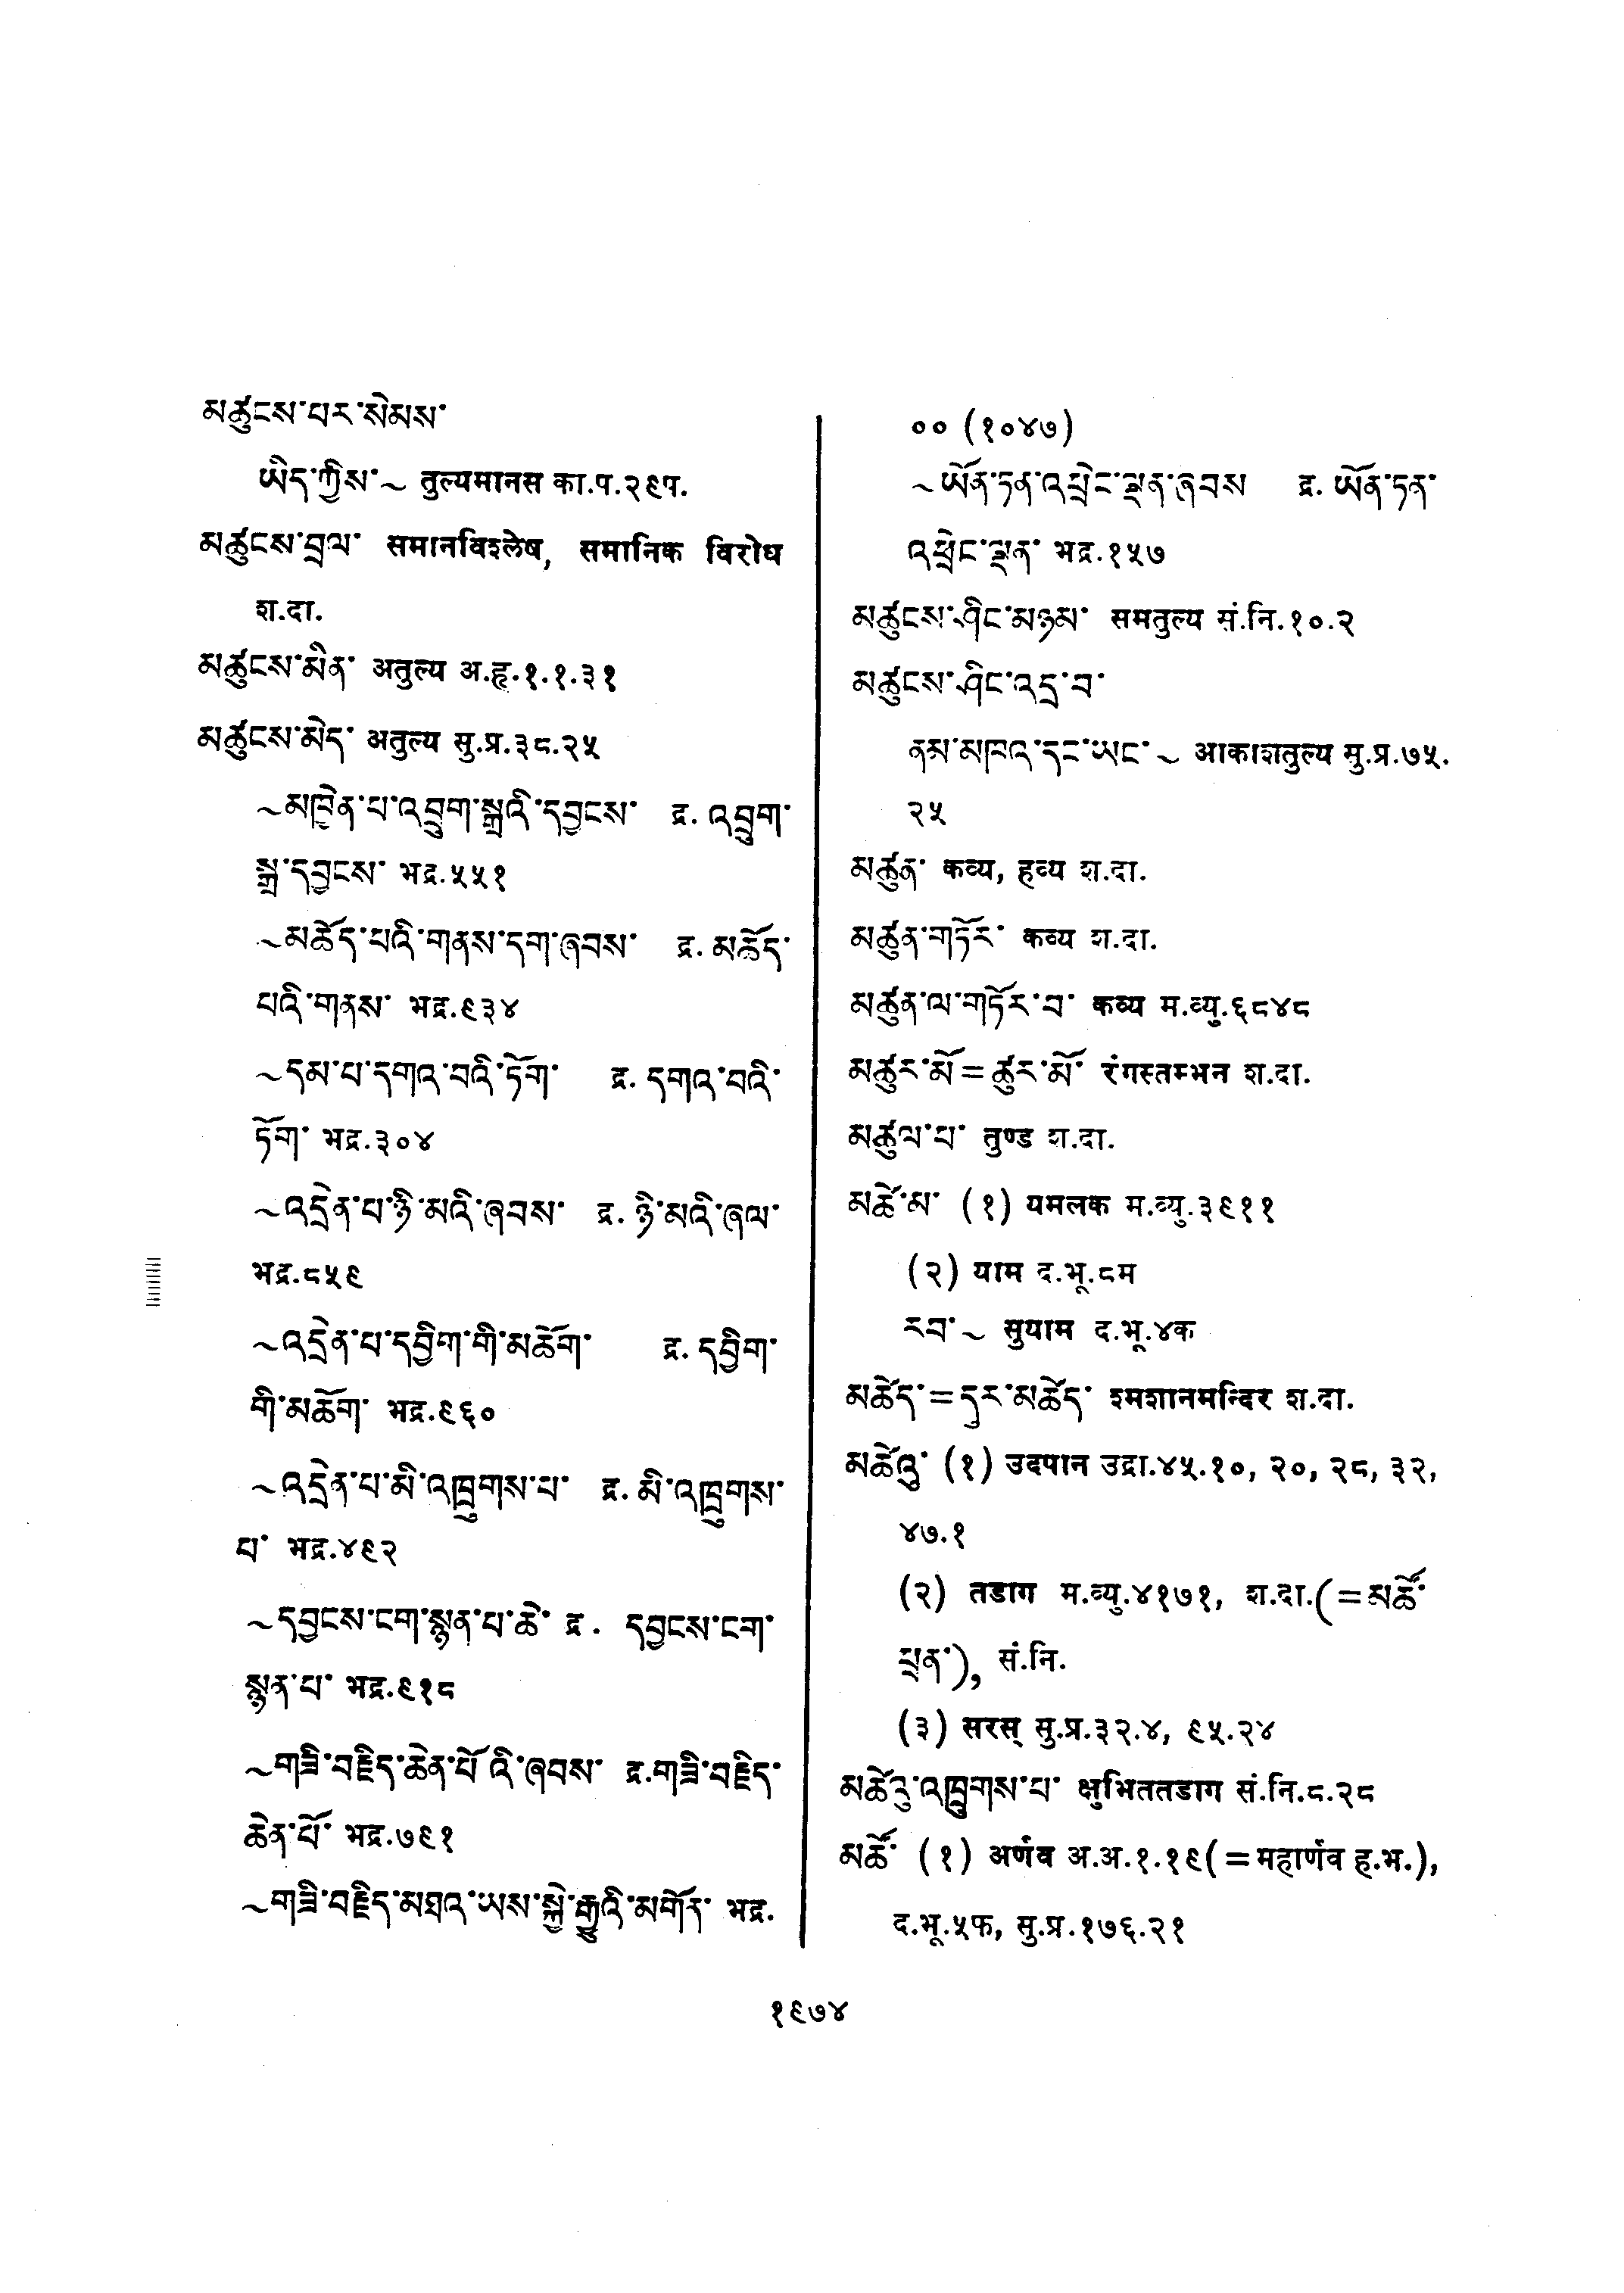 མཚུངས་པར་སེམས་
ཡིད་ཀྱིས་~ तुल्यमानस का.प.२९प.
མཚུངས་བྲལ་ समानविश्लेष, समानिक विरोध
श.दा.
མཚུངས་མིན་ अतुल्य अ.हृ.१.१.३१
མཚུངས་མེད་ अतुल्य सु.प्र.३८.२५
~མཁྱེན་པ་འབྲུག་སྒྲའི་དབྱངས་ द्र. འབྲུག་
སྒྲ་དབྱངས་ भद्र.५५१
~མཆོད་པའི་གནས་དག་ཞབས་ द्र. མཆོད་
པའི་གནས་ भद्र.९३४
~དམ་པ་དགའ་བའི་ཏོག་ द्र. དགའ་བའི་
ཏོག་ भद्र.३०४
~འདྲེན་པ་ཉི་མའི་ཞབས་ द्र. ཉི་མའི་ཞལ་
भद्र.८५९
~འདྲེན་པ་དབྱིག་གི་མཆོག་ द्र. དབྱིག་
གི་མཆོག་ भद्र.९६०
~འདྲེན་པ་མི་འཁྲུགས་པ་ द्र. མི་འཁྲུགས་
པ་ भद्र.४९२
~དབྱངས་ངག་སྙན་པ་ཆེ་ द्र. དབྱངས་ངག་
སྙན་པ་ भद्र.९१८
~གཟི་བརྗིད་ཆེན་པོ་འི་ཞབས་ द्र.གཟི་བརྗིད་
ཆེན་པོ་ भद्र.७९१
~གཟི་བརྗིད་མཐའ་ཡས་སྐྱེ་རྒུའི་མགོན་ भद्र.
०० (१०४७)
~ཡོན་ཏན་འཕྲེང་ལྡན་ཞབས द्र. ཡོན་ཏན་
འཕྲེང་ལྡན་ भद्र.१५७
མཚུངས་ཤིང་མཉམ་ समतुल्य सं.नि.१०.२
མཚུངས་ཤིང་འདྲ་བ་
ནམ་མཁའ་དང་ཡང་~ आकाशतुल्य सु.प्र.७५.
२५
མཚུན་ कव्य, हव्य श.दा.
མཚུན་གཏོར་ कव्य श.दा.
མཚུན་ལ་གཏོར་བ་ कव्य म.व्यु.६८४८
མཚུར་མོ=ཚུར་མོ་ रंगस्तम्भन श.दा.
མཚུལ་པ་ तुण्ड श.दा.
མཚེ་མ་ (१) यमलक म.व्यु.३९११
(२) याम द.भू.८म
རབ་~ सुयाम द.भू.४क
མཚེད་=དུར་མཚེད་ श्मशानमन्दिर श.दा.
མཚེའུ་ (१) उदपान उद्रा.४५.१०, २०, २८, ३२,
४७.१
(२) तडाग म.व्यु.४१७१, श.दा.(=མཚོ་
ཕྲན་), सं.नि.
(३) सरस् सु.प्र.३२.४, ९५.२४
མཚེའུ་འཁྲུགས་པ་ क्षुभिततडाग सं.नि.८.२८
མཚོ་ (१) अर्णव अ.अ.१.१९(=महार्णव ह.भ.),
द.भू.५फ, सु.प्र.१७६.२१
१९७४